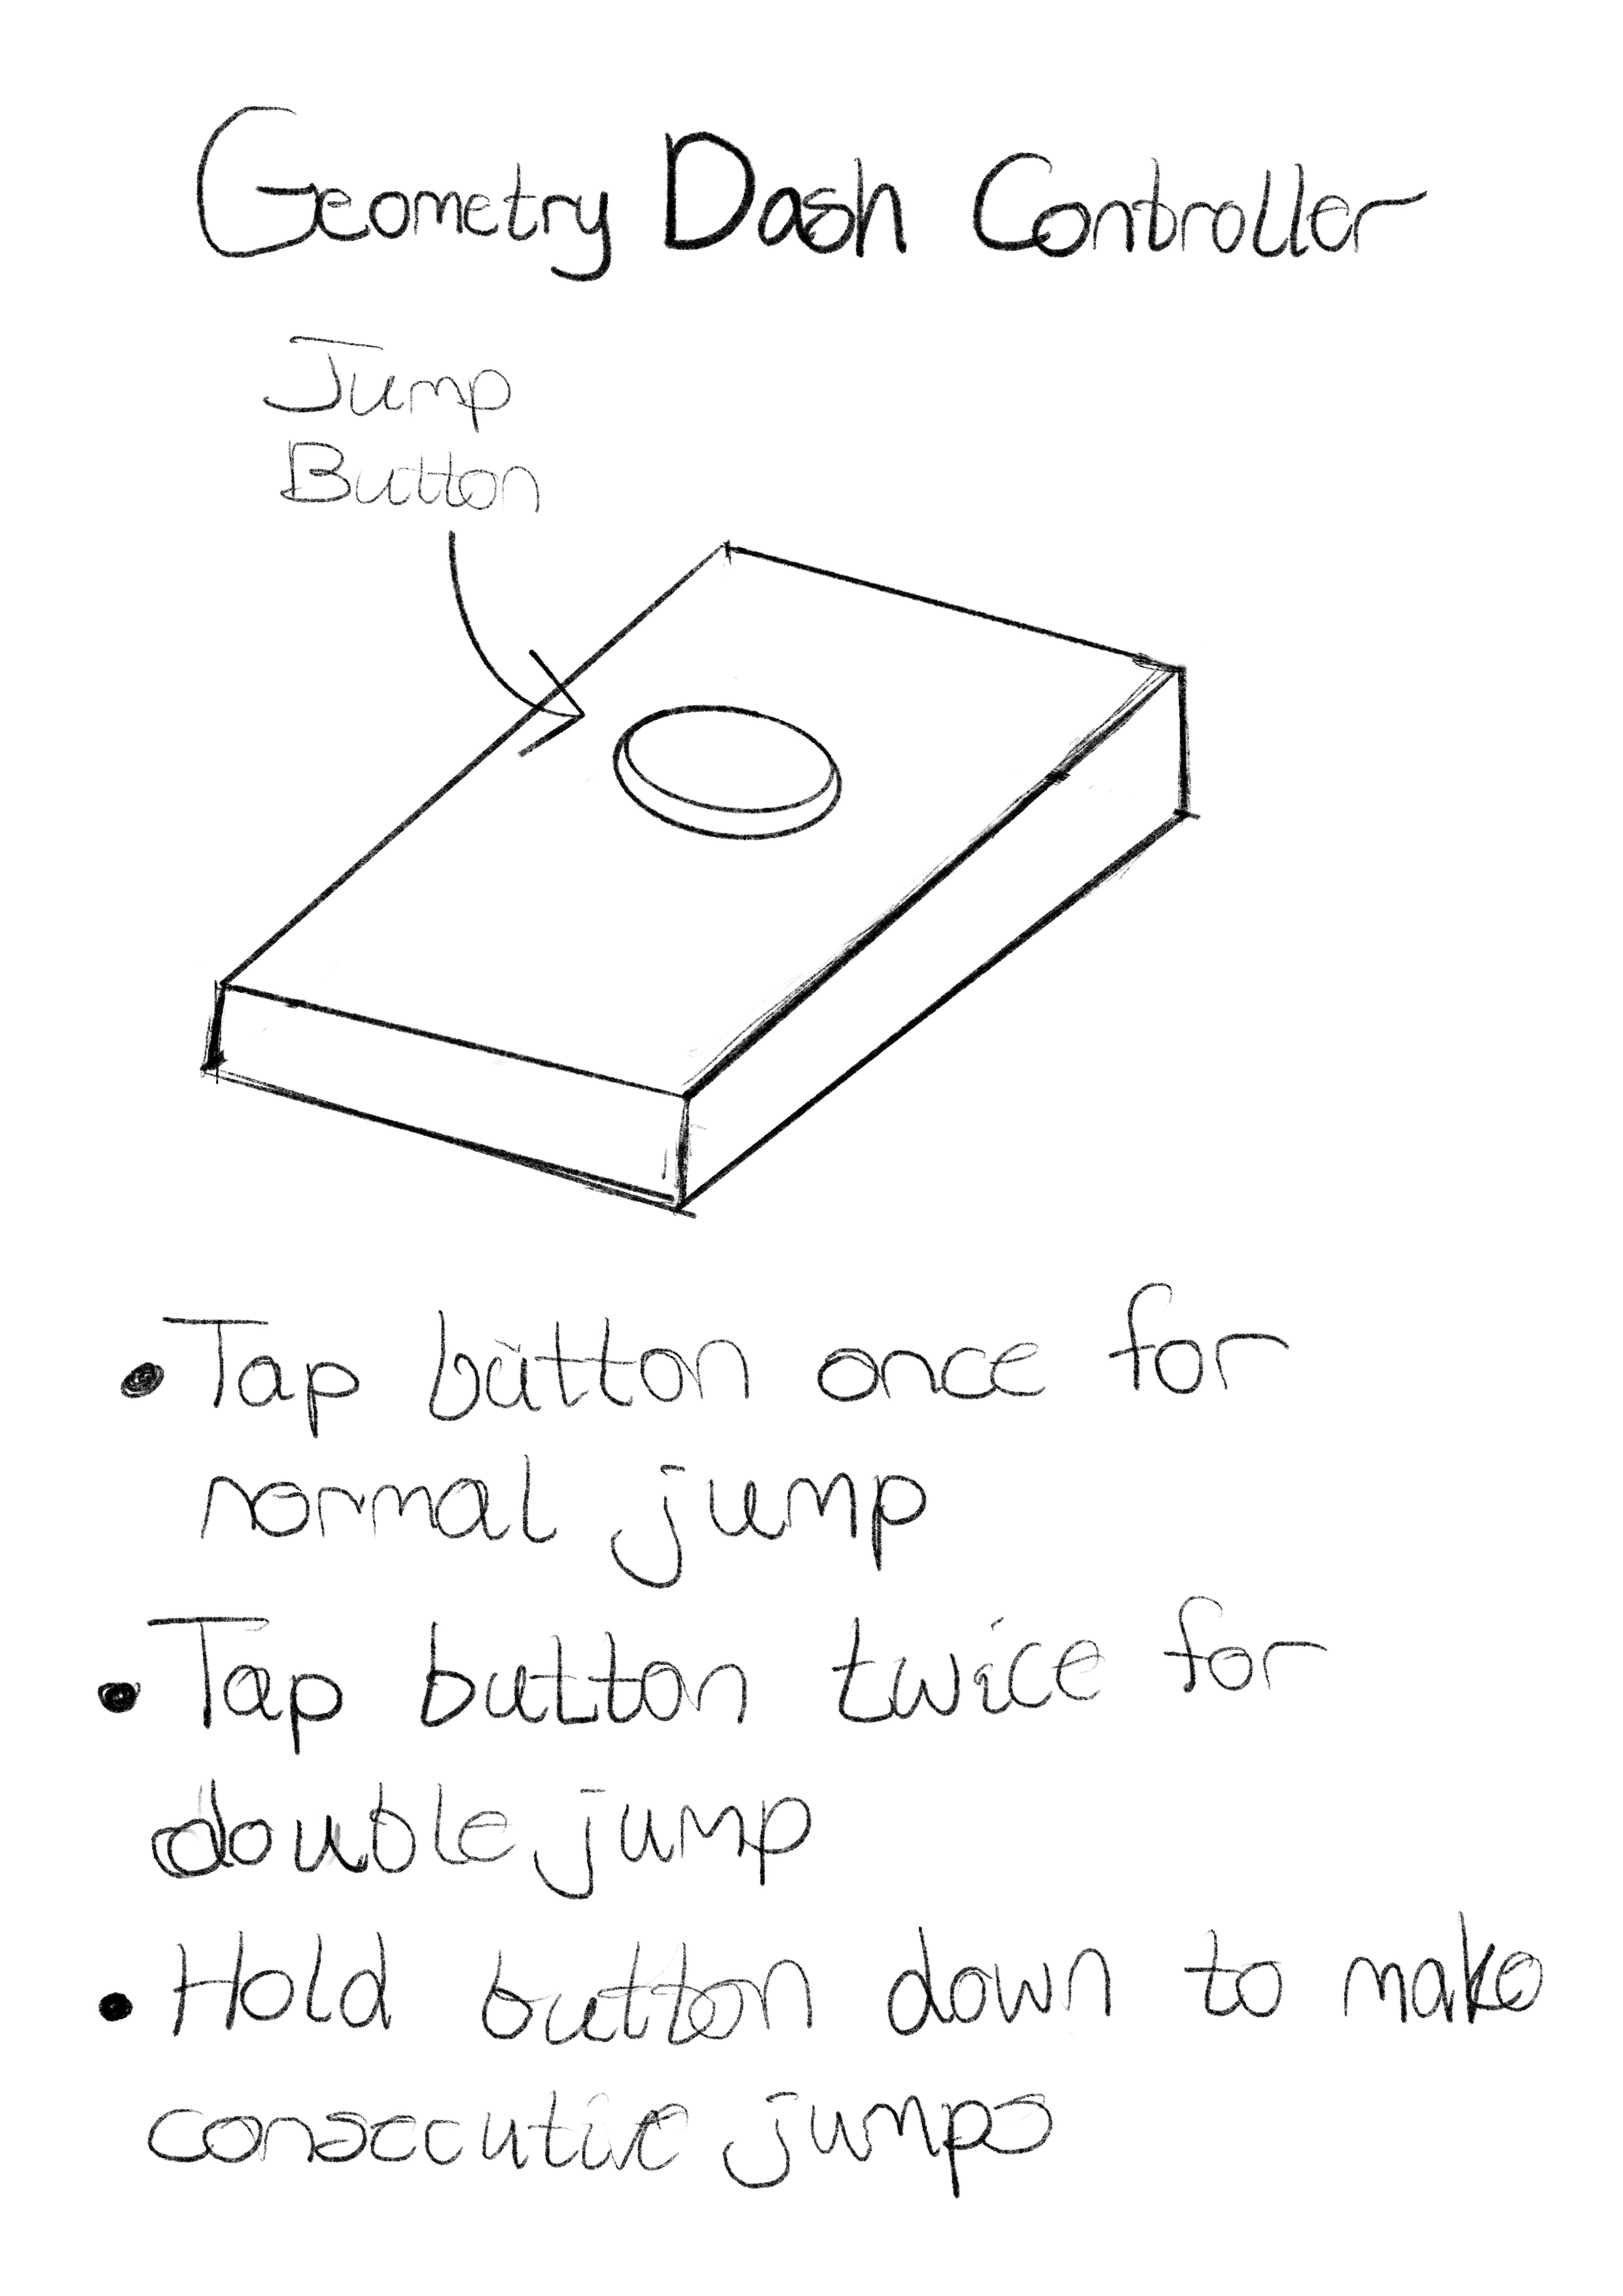 Geometry Dash Controller
Jump
Button
• Tap button once for
normal jump
• Tap button twice for
double jump
• Hold button down to make
consecutive jumps